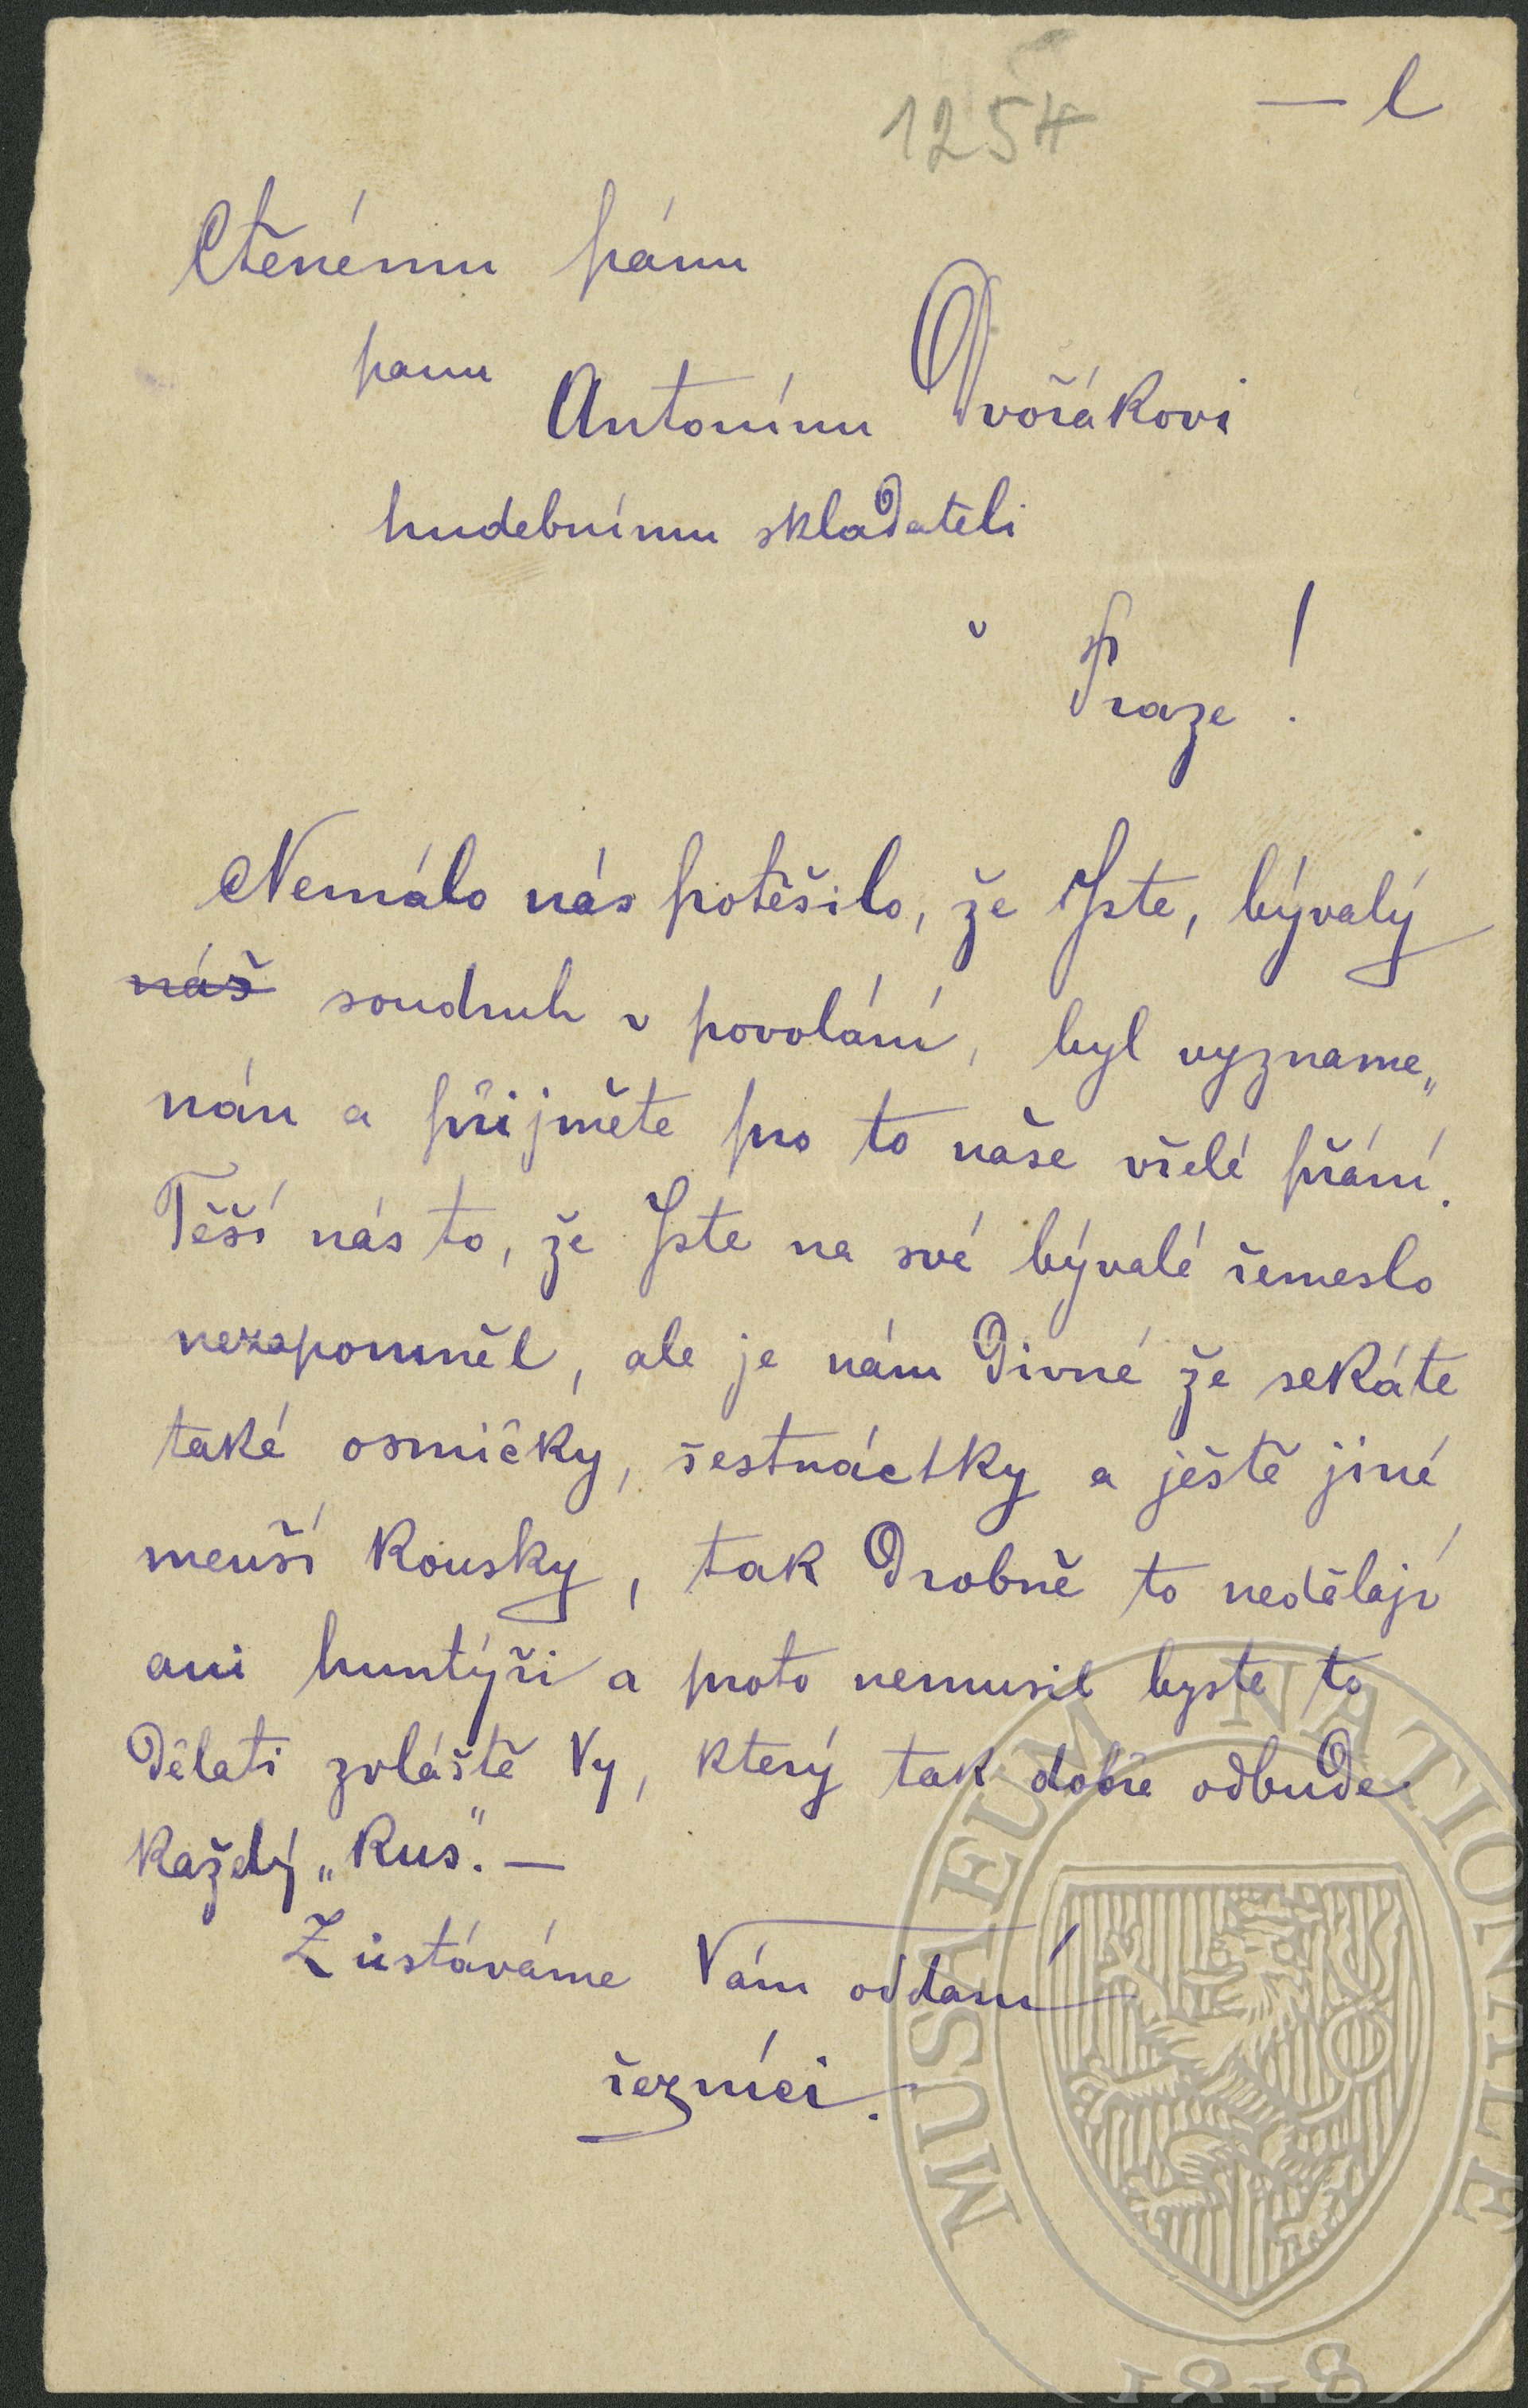 1254
— l
Ctěnému pánu
panu
Antonínu Dvořákovi
hudebnímu skladateli
v Praze!
Nemálo nás potěšilo, že Jste, bývalý
náš soudruh v povolání, byl vyzname„
nán a přijměte pro to naše vřelé přání.
Těší nás to, že Jste na své bývalé řemeslo
nezapomněl, ale je nám divné že sekáte
také osmičky, šestnáctky a ještě jiné
menší kousky, tak drobně to nedělají
ani huntýři a proto nemusil byste to
dělati zvláště Vy, který tak dobře odbude
každý „kus“. —
Zůstáváme Vám oddaní
řezníci.
MUSAEUM NATIONALE
1818